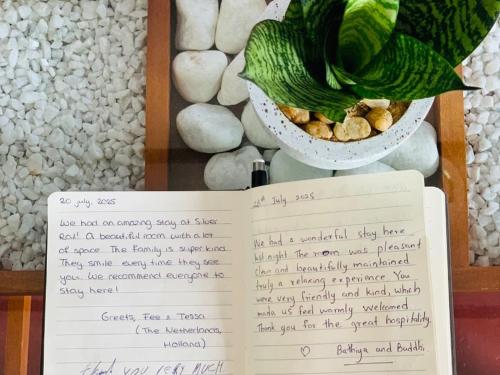 20 july, 2025
We had an amazing stay at Silver
Rail! A beautiful room with a lot
of space. The family is super kind.
They smile every time they see
you. We recommend everyone to
stay here!
Greets, Fee & Tessa
(The Netherlands,
Holland)
Thank YOU VERY MUCH
July 2025
We had a wonderful stay here
last night. The room was pleasant
clean and beautifully maintained
truly a relaxing experience. You
were very friendly and kind, which
made us feel warmly welcomed.
Thank you for the great hospitality.
♡ Bathiya and Buddhi.